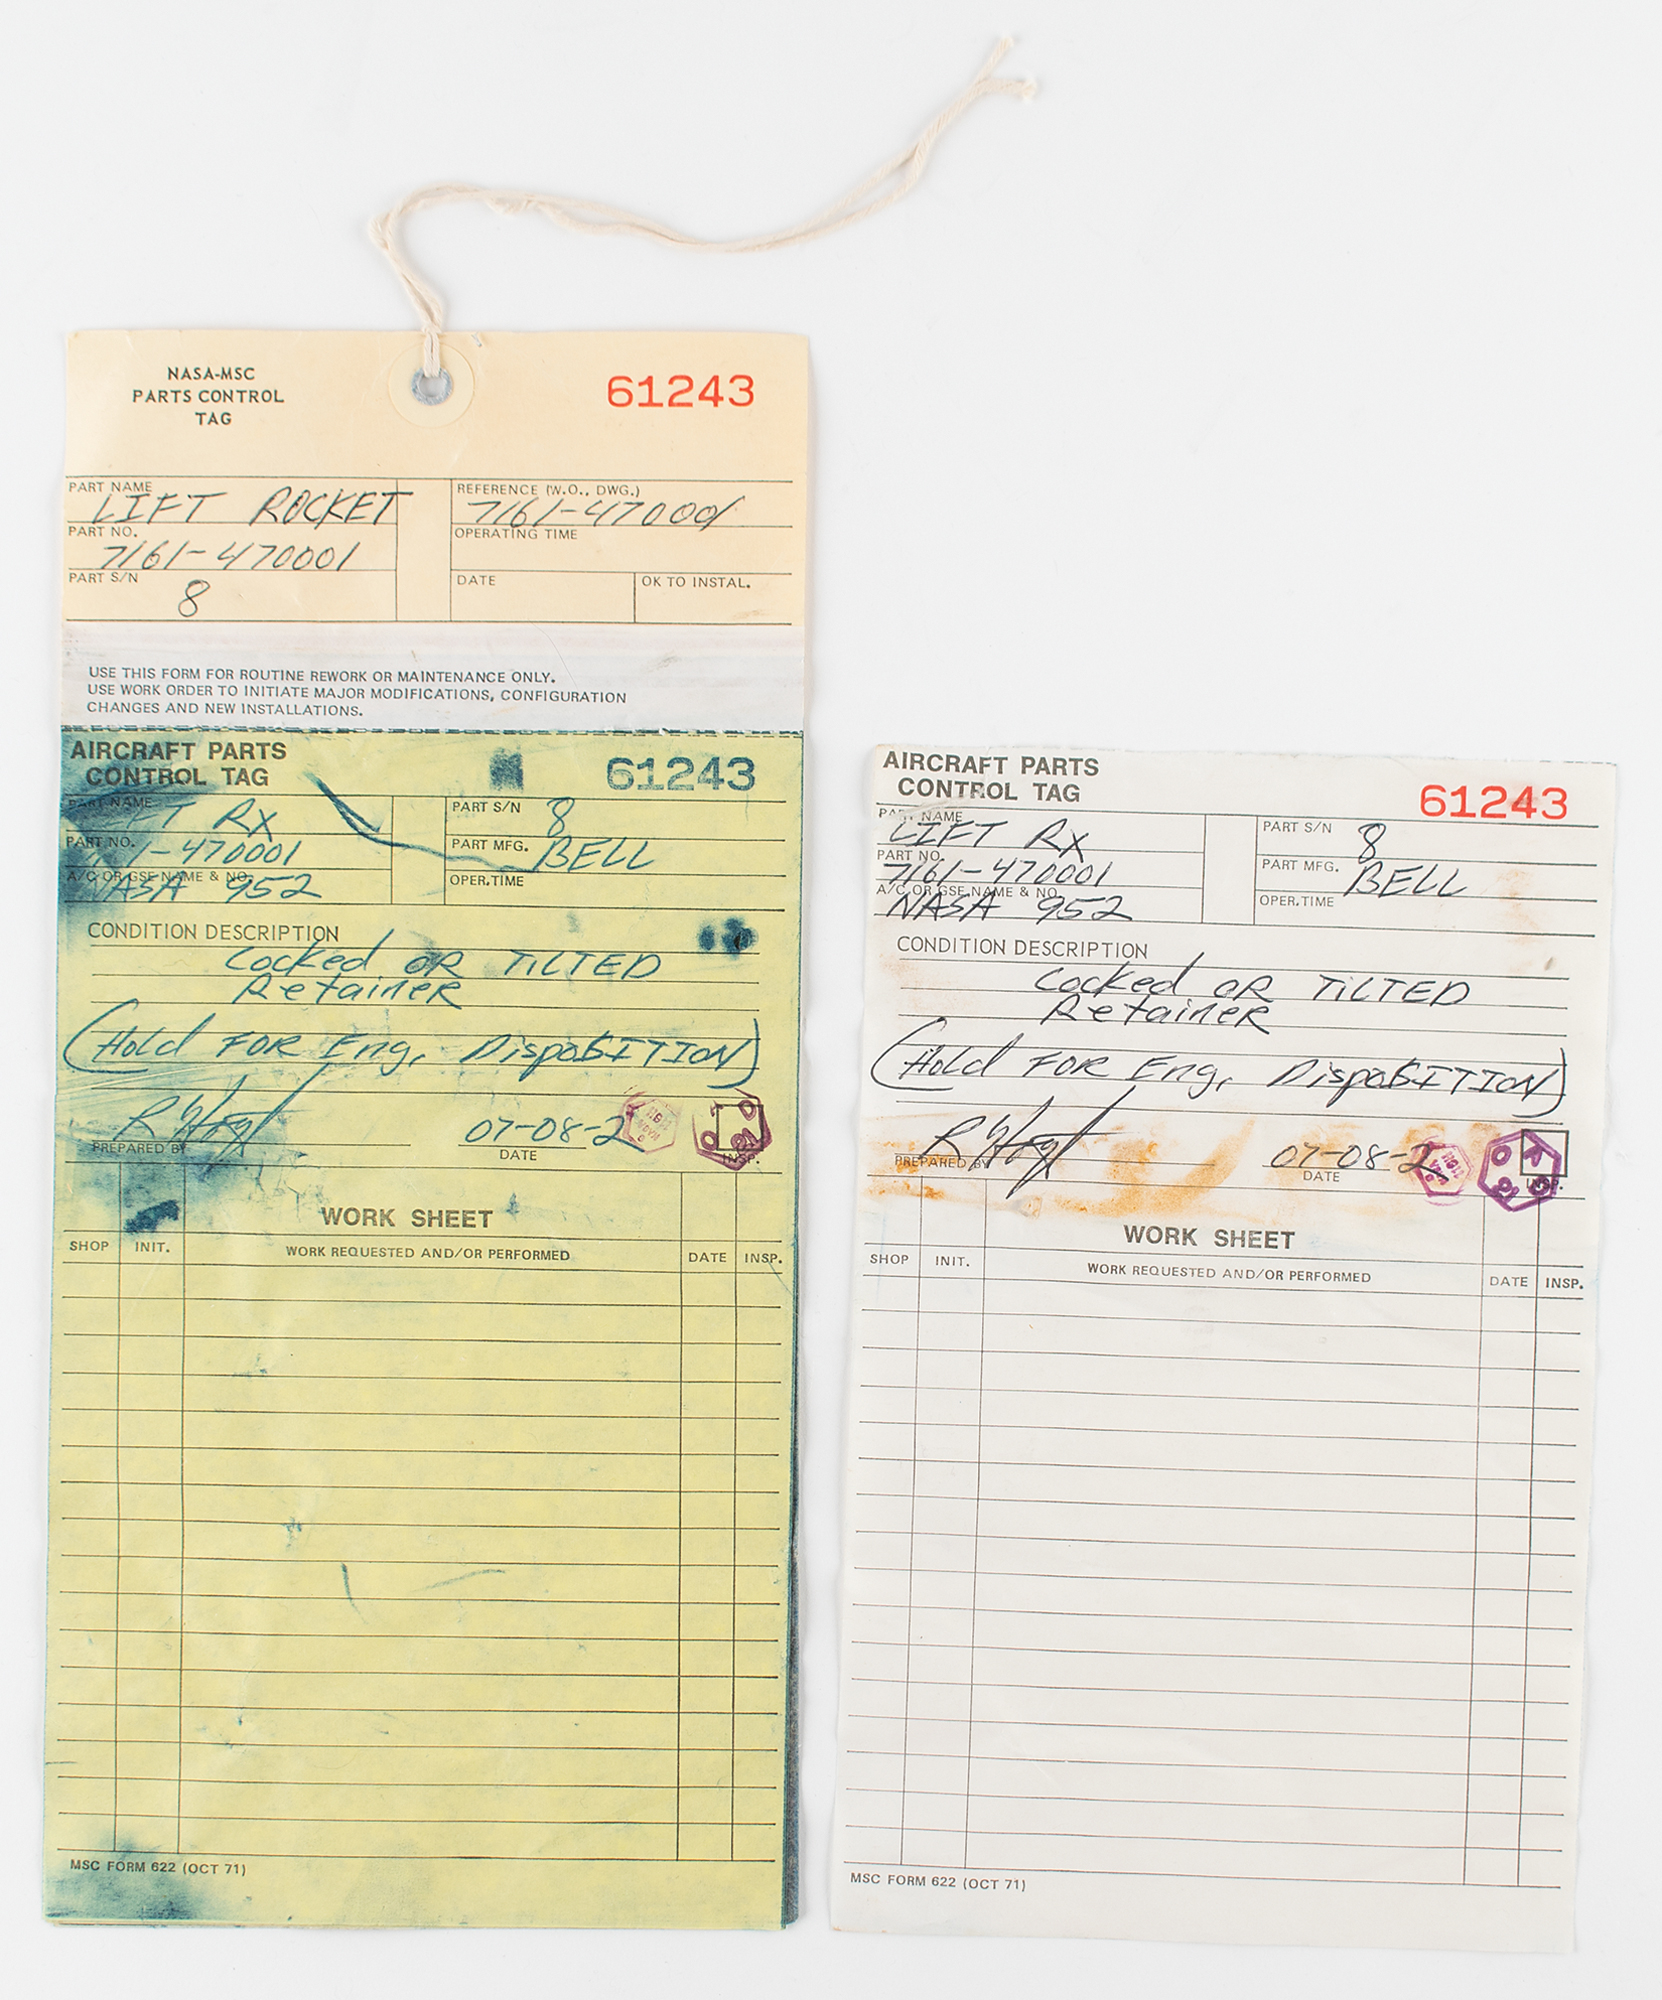 NASA-MSC
PARTS CONTROL
TAG
61243
PART NAME
LIFT ROCKET
REFERENCE (W.O., DWG.)
7161-470001
PART NO.
7161-470001
OPERATING TIME
PART S/N
8
DATE
OK TO INSTAL.
USE THIS FORM FOR ROUTINE REWORK OR MAINTENANCE ONLY.
USE WORK ORDER TO INITIATE MAJOR MODIFICATIONS, CONFIGURATION
CHANGES AND NEW INSTALLATIONS.
AIRCRAFT PARTS
CONTROL TAG
61243
PART NAME
RX
PART S/N
8
PART NO.
1-470001
PART MFG.
BELL
A/C OR GSE NAME & NO.
NASA 952
OPER.TIME
CONDITION DESCRIPTION
Cocked OR TILTED
Retainer
(Hold FOR Eng. DispoSITION)
PREPARED BY
R
07-08-2
DATE
INSP.
WORK SHEET
SHOP
INIT.
WORK REQUESTED AND/OR PERFORMED
DATE
INSP.
MSC FORM 622 (OCT 71)
AIRCRAFT PARTS
CONTROL TAG
61243
PART NAME
LIFT RX
PART S/N
8
PART NO.
7161-470001
PART MFG.
BELL
A/C OR GSE NAME & NO.
NASA 952
OPER.TIME
CONDITION DESCRIPTION
Cocked OR TILTED
Retainer
(Hold FOR Eng. DispoSITION)
PREPARED BY
R
07-08-2
DATE
INSP.
WORK SHEET
SHOP
INIT.
WORK REQUESTED AND/OR PERFORMED
DATE
INSP.
MSC FORM 622 (OCT 71)